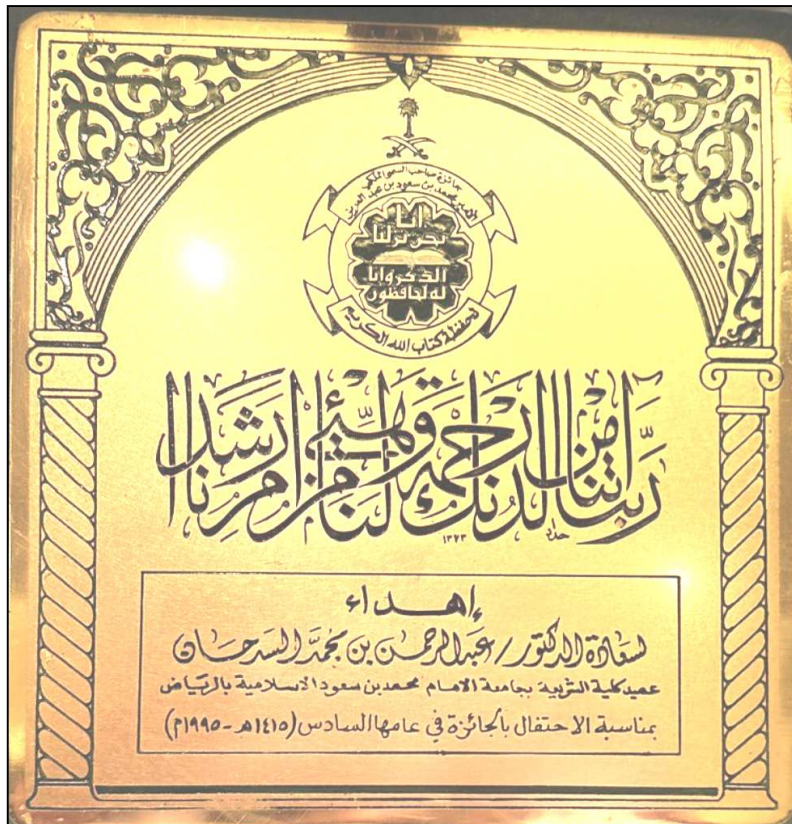 جائزة صاحب السمو الملكي
الأمير محمد بن سعود بن عبد العزيز
انا
نحن نزلنا
الذكر وانا
له لحافظون
لحفظة كتاب الله الكريم
رَبَّنَا آتِنَا مِنْ لَدُنْكَ رَحْمَةً وَهَيِّئْ لَنَا مِنْ أَمْرِنَا رَشَدًا
١٣٧٣
إهداء
لسعادة الدكتور / عبدالرحمن بن محمد السدحان
عميد كلية التربية بجامعة الامام محمد بن سعود الاسلامية بالرياض
بمناسبة الاحتفال بالجائزة في عامها السادس (١٤١٥هـ - ١٩٩٥م)